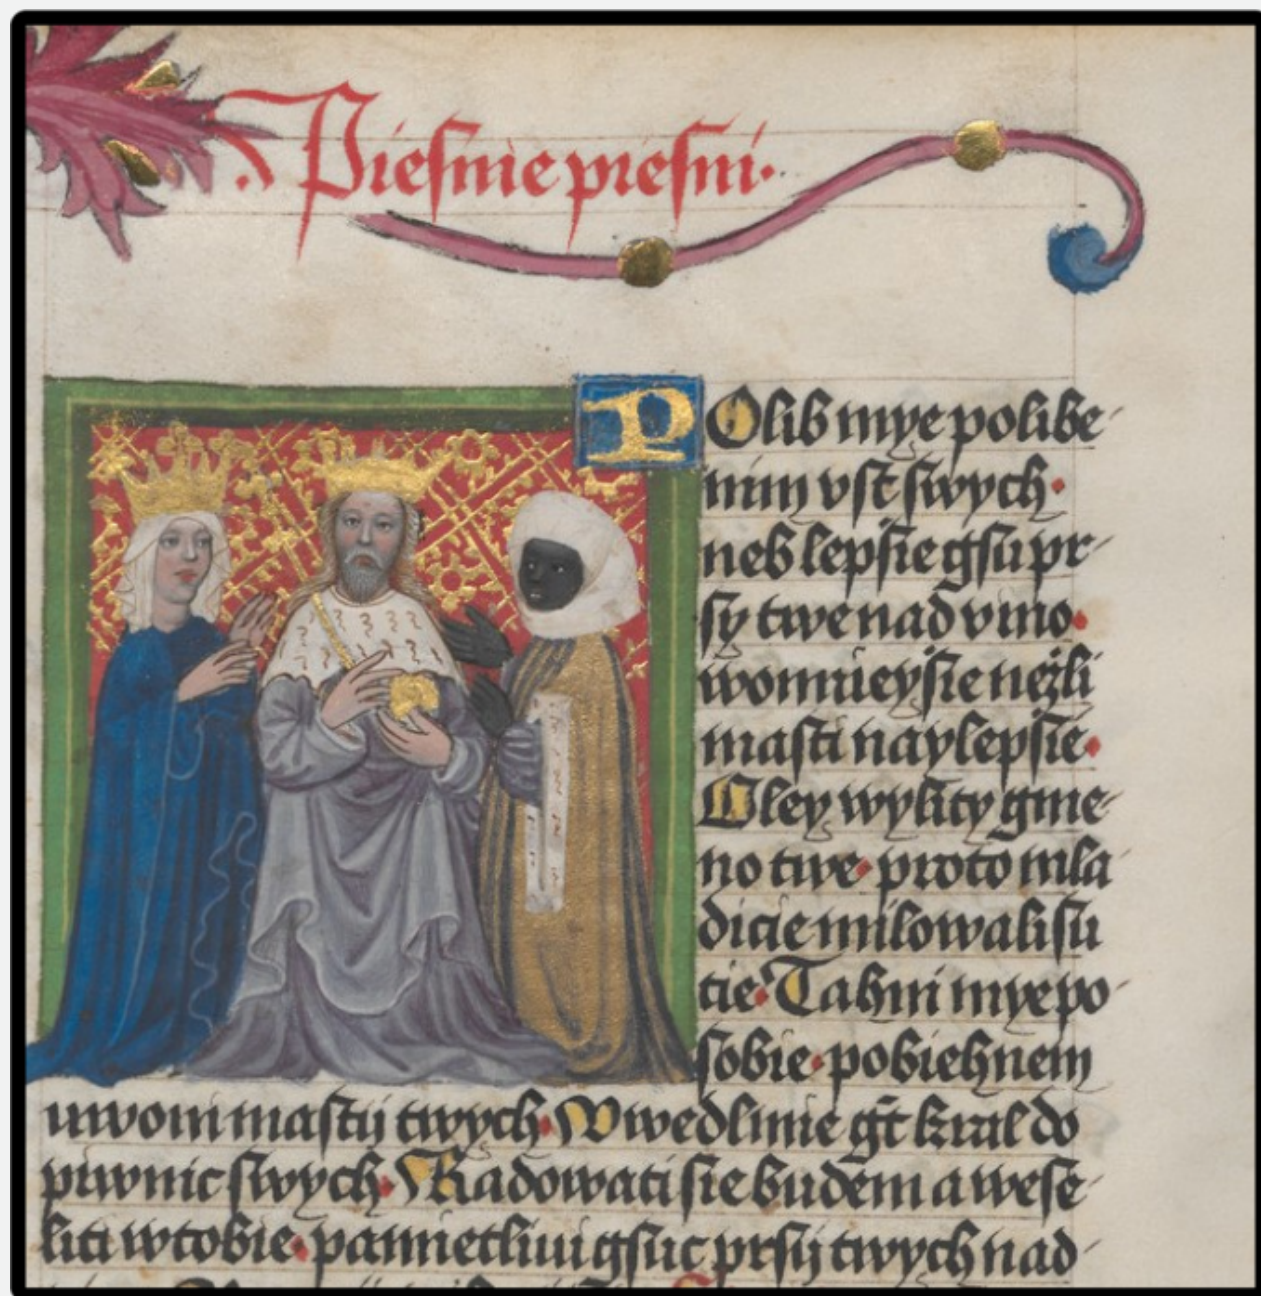 Pieſnie pieſni·
POlib mye polibe-
nim vſt ſwych·
neb lepſie gſu pr-
ſy twe nad vino·
wonnieyſie nežli
maſti naylepſie·
Oley wylity gme-
no twe· proto mla-
dicie milowali ſu
tie· Tahni mye po-
ſobie· pobiehnem
uwoni maſtij twych· Uwedl mie gt̃ kral do
piwnic ſwych· Radowati ſie budem a weſe-
liti w tobie· pamietliui gſuc prſij twych nad-